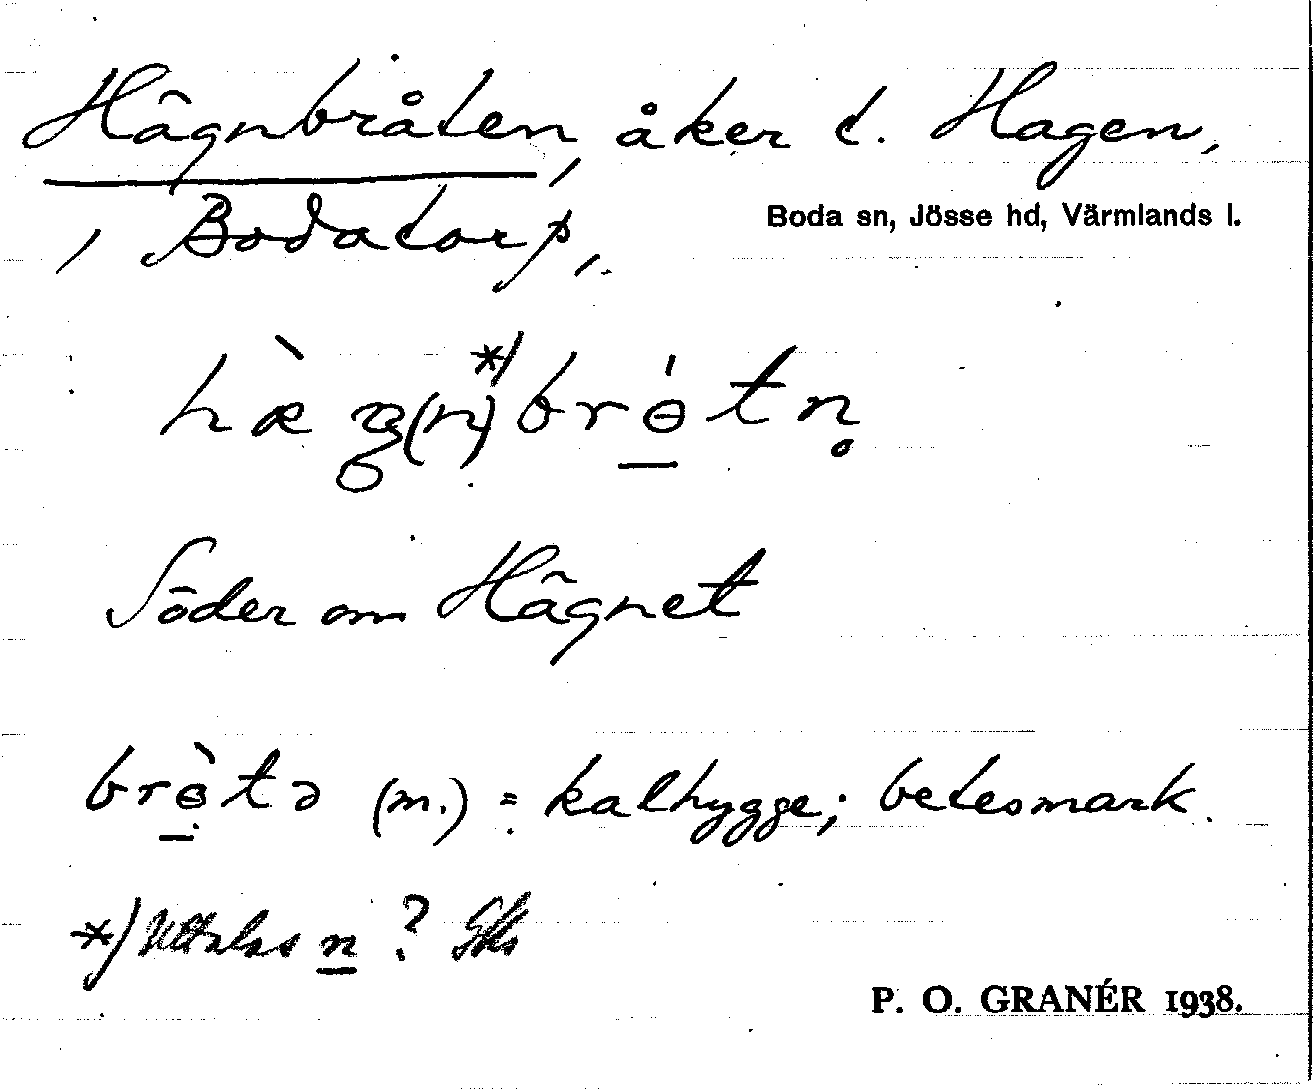 Hägnbråten, åker t. Hagen,
Boda sn, Jösse hd, Värmlands l.
, Bodatorp,
hæ̀ŋ(n)*)brɵ́tn̥
Söder om Hägnet
brɵ̀tə (m.) = kalhygge; betesmark.
*) Uttalas n?
P. O. GRANÉR 1938.